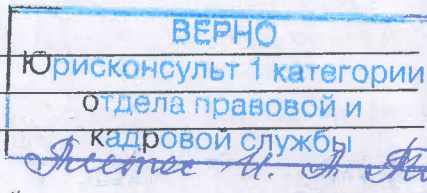 ВЕРНО
Юрисконсульт 1 категории
отдела правовой и
кадровой службы
И. А.